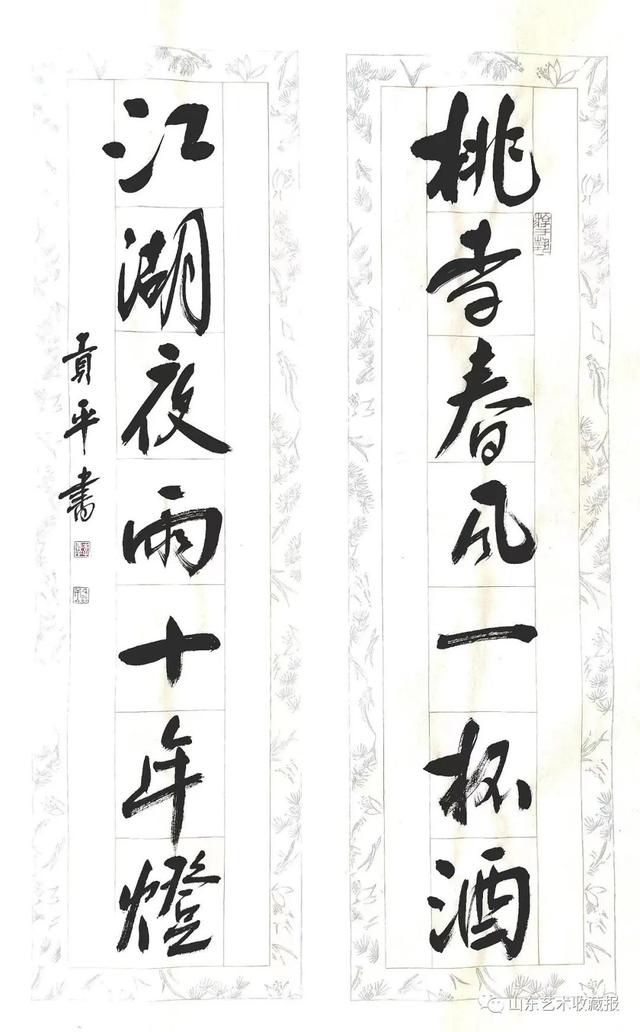 桃李春风一杯酒
江湖夜雨十年燈
貢平書
山东艺术收藏报